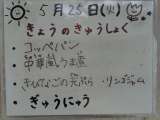 5月25日(火)
きょうのきゅうしょく
コッペパン
中華風うま煮
きんぴらごの天ぷら リンゴジャム
ぎゅうにゅう